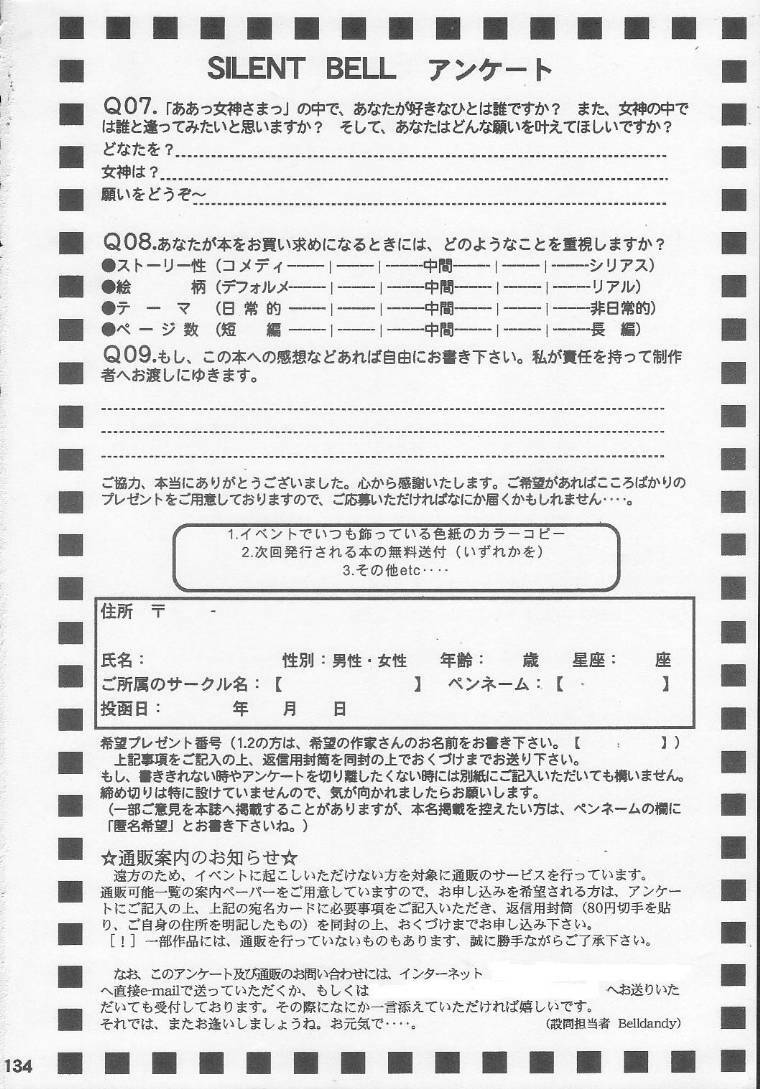 SILENT BELL アンケート
Q07.「ああっ女神さまっ」の中で、あなたが好きなひとは誰ですか？　また、女神の中で
は誰と逢ってみたいと思いますか？　そして、あなたはどんな願いを叶えてほしいですか？
どなたを？
女神は？
願いをどうぞ〜
Q08.あなたが本をお買い求めになるときには、どのようなことを重視しますか？
●ストーリー性（コメディ―――｜―――｜―――中間―――｜―――｜―――シリアス）
●絵　　　柄（デフォルメ―――｜―――｜―――中間―――｜―――｜―――リアル）
●テ　ー　マ（日 常 的 ―――｜―――｜―――中間―――｜―――｜―――非日常的）
●ページ数（短　　編 ―――｜―――｜―――中間―――｜―――｜―――長　編）
Q09.もし、この本への感想などあれば自由にお書き下さい。私が責任を持って制作
者へお渡しにゆきます。
ご協力、本当にありがとうございました。心から感謝いたします。ご希望があればこころばかりの
プレゼントをご用意しておりますので、ご応募いただければなにか届くかもしれません‥‥。
1.イベントでいつも飾っている色紙のカラーコピー
2.次回発行される本の無料送付（いずれかを）
3.その他etc‥‥
住所　〒　　　-
氏名：　　　　　　　　性別：男性・女性　　年齢：　　歳　　星座：　　座
ご所属のサークル名：【　　　　　　　　】　ペンネーム：【　-　　　　】
投函日：　　　　年　　月　　日
希望プレゼント番号（1.2の方は、希望の作家さんのお名前をお書き下さい。【　　：　　】）
　上記事項をご記入の上、返信用封筒を同封の上でおくづけまでお送り下さい。
もし、書ききれない時やアンケートを切り離したくない時には別紙にご記入いただいても構いません。
締め切りは特に設けていませんので、気が向かれましたらお願いします。
（一部ご意見を本誌へ掲載することがありますが、本名掲載を控えたい方は、ペンネームの欄に
「匿名希望」とお書き下さいね。）
☆通販案内のお知らせ☆
　遠方のため、イベントに起こしいただけない方を対象に通販のサービスを行っています。
通販可能一覧の案内ペーパーをご用意していますので、お申し込みを希望される方は、アンケー
トにご記入の上、上記の宛名カードに必要事項をご記入いただき、返信用封筒（80円切手を貼
り、ご自身の住所を明記したもの）を同封の上、おくづけまでお申込み下さい。
［！］一部作品には、通販を行っていないものもあります、誠に勝手ながらご了承下さい。
　なお、このアンケート及び通販のお問い合わせには、インターネット
へ直接e-mailで送っていただくか、もしくは　　　　　　　　へお送りいた
だいても受付しております。その際になにか一言添えていただければ嬉しいです。
それでは、またお逢いしましょうね。お元気で‥‥。　　（設問担当者 Belldandy）
134